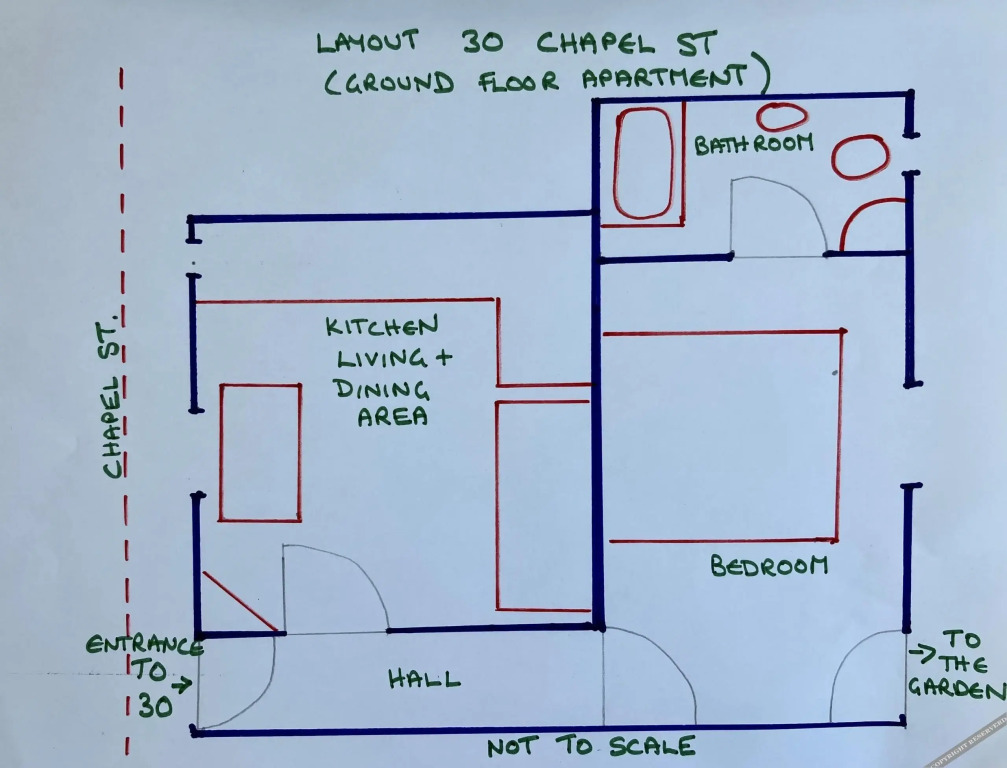 LAYOUT 30 CHAPEL ST
(GROUND FLOOR APARTMENT)
BATHROOM
KITCHEN
LIVING +
DINING
AREA
CHAPEL ST.
BEDROOM
ENTRANCE
TO
30
HALL
TO
THE
GARDEN
NOT TO SCALE
COPYRIGHT RESERVED